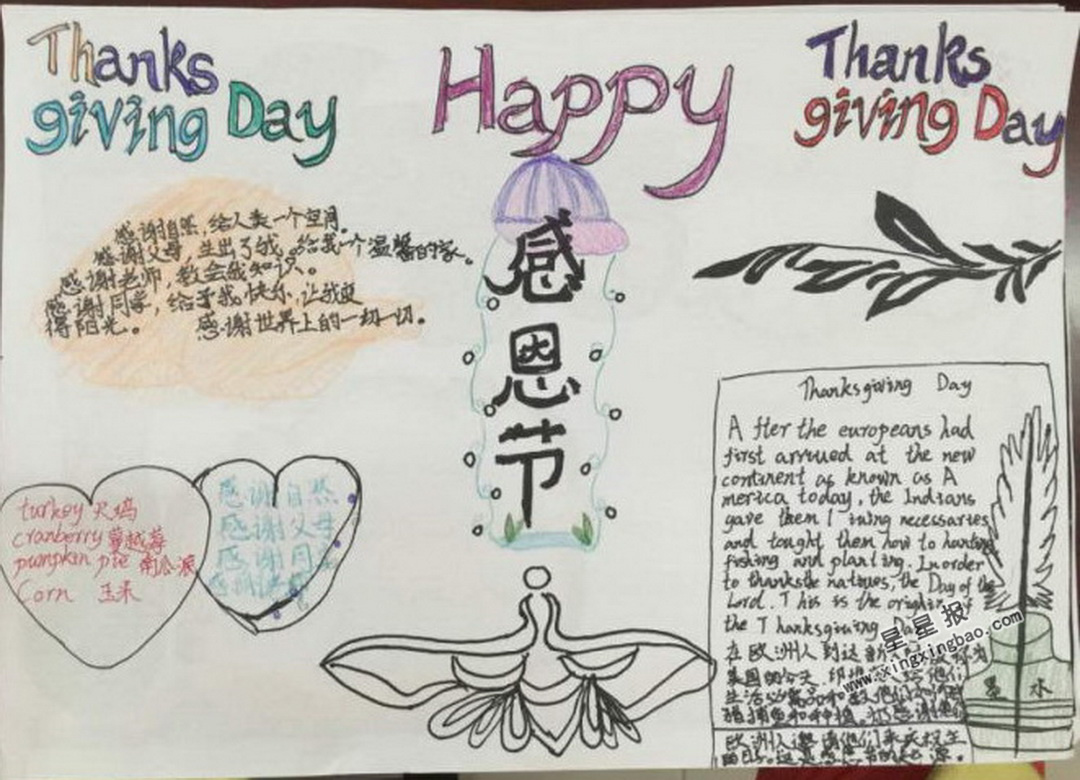 Thanks
giving Day
Happy
Thanks
giving Day
感谢自然,给人类一个空间。
感谢父母,生出了我。给我一个温馨的家。
感谢老师,教会我知识。
感谢同学,给予我快乐,让我变
得阳光。 感谢世界上的一切一切。
感
恩
节
turkey 火鸡
cranberry 蔓越莓
pumpkin pie 南瓜派
Corn 玉米
感谢自然
感谢父母
感谢同
感谢
Thanksgiving Day
A fter the europeans had
first arrived at the new
continent as known as A
merica today, the Indians
gave them l iving necessaries
and tought them how to hunting
fishing and planting. In order
to thanks the natives, the Day of the
Lord. T his is the origin of
the T hanksgiving Day
在欧洲人到达新
美国的今天,印
生活必需品和教他们如何
猎捕鱼和种植。为了感谢他们
欧洲人邀请他们来庆祝主
的日。这是感恩节的起源。
墨水
星星报
www.xingxingbao.com